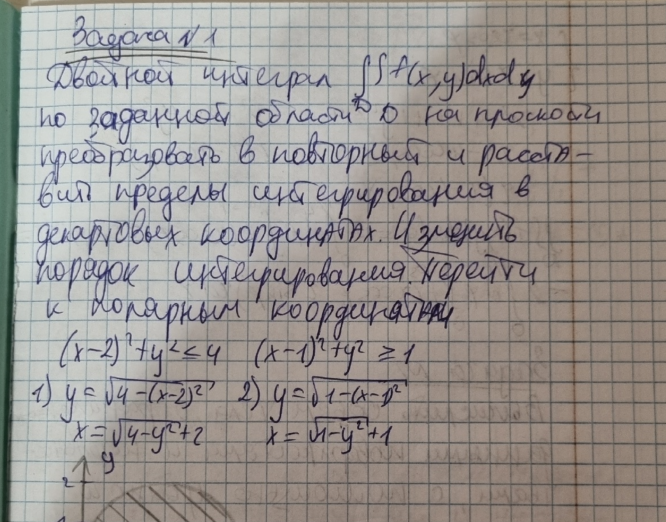 Задача №1
Двойной интеграл ∬f(x,y)dxdy
D
по заданной области D на проскости
преобразовать в повторный и расста-
вить пределы интегрирования в
декартовых координатах. Изменить
порядок интегрирования. Перейти
к полярным координатам
(x-2)²+y²≤4 (x-1)²+y²≥1
1) y=√4-(x-2)² 2) y=√1-(x-1)²
x=√4-y²+2 x=√1-y²+1
y
2